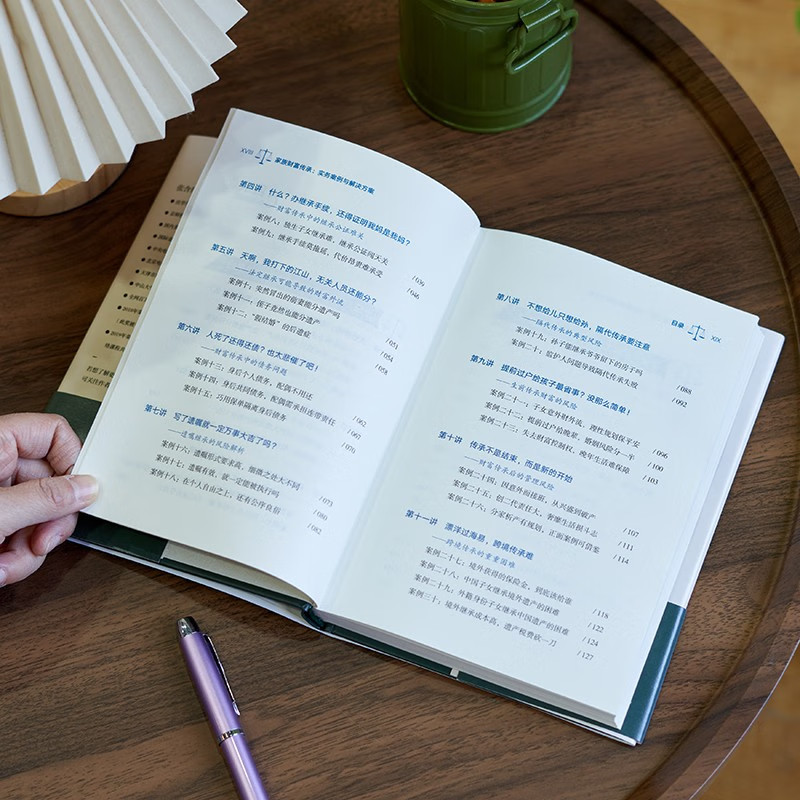 XVIII 家族财富传承：实务案例与解决方案
第四讲 什么？办继承手续，还得证明我妈是我妈？
——财富传承中的继承公证难关
案例八：独生子女继承难，继承公证闯天关 /039
案例九：继承手续莫拖延，代价昂贵难承受 /046
第五讲 天啊，我打下的江山，无关人员还能分？
——法定继承可能导致的财富外流
案例十：突然冒出的前妻能分遗产吗 /051
案例十一：侄子竟然也能分遗产 /054
案例十二：“假结婚”的后遗症 /058
第六讲 人死了还得还债？也太悲催了吧！
——财富传承中的债务问题
案例十三：身后个人债务，配偶不用还 /062
案例十四：身后共同债务，配偶需承担连带责任 /067
案例十五：巧用保单隔离身后债务 /070
第七讲 写了遗嘱就一定万事大吉了吗？
——遗嘱继承的风险解析
案例十六：遗嘱形式要求高，细微之处大不同 /073
案例十七：遗嘱有效，就一定能被执行吗 /080
案例十八：在个人自由之上，还有公序良俗 /082
目录 XIX
第八讲 不想给儿只想给孙，隔代传承要注意
——隔代传承的典型风险
案例十九：孙子能继承爷爷留下的房子吗 /088
案例二十：监护人问题导致隔代传承失败 /092
第九讲 提前过户给孩子最省事？没那么简单！
——生前传承财富的风险
案例二十一：子女意外财外流，理性规划保平安 /096
案例二十二：提前过户给晚辈，婚姻风险分一半 /100
案例二十三：失去财富控制权，晚年生活难保障 /103
第十讲 传承不是结束，而是新的开始
——财富传承后的管理风险
案例二十四：因意外而接班，从兴盛到破产 /107
案例二十五：创二代责任大，奢靡生活损斗志 /111
案例二十六：分家析产有规划，正面案例可借鉴 /114
第十一讲 漂洋过海易，跨境传承难
——跨境传承的重重困难
案例二十七：境外获得的保险金，到底该给谁 /118
案例二十八：中国子女继承境外遗产的困难 /122
案例二十九：外籍身份子女继承中国遗产的困难 /124
案例三十：境外继承成本高，遗产税费砍一刀 /127